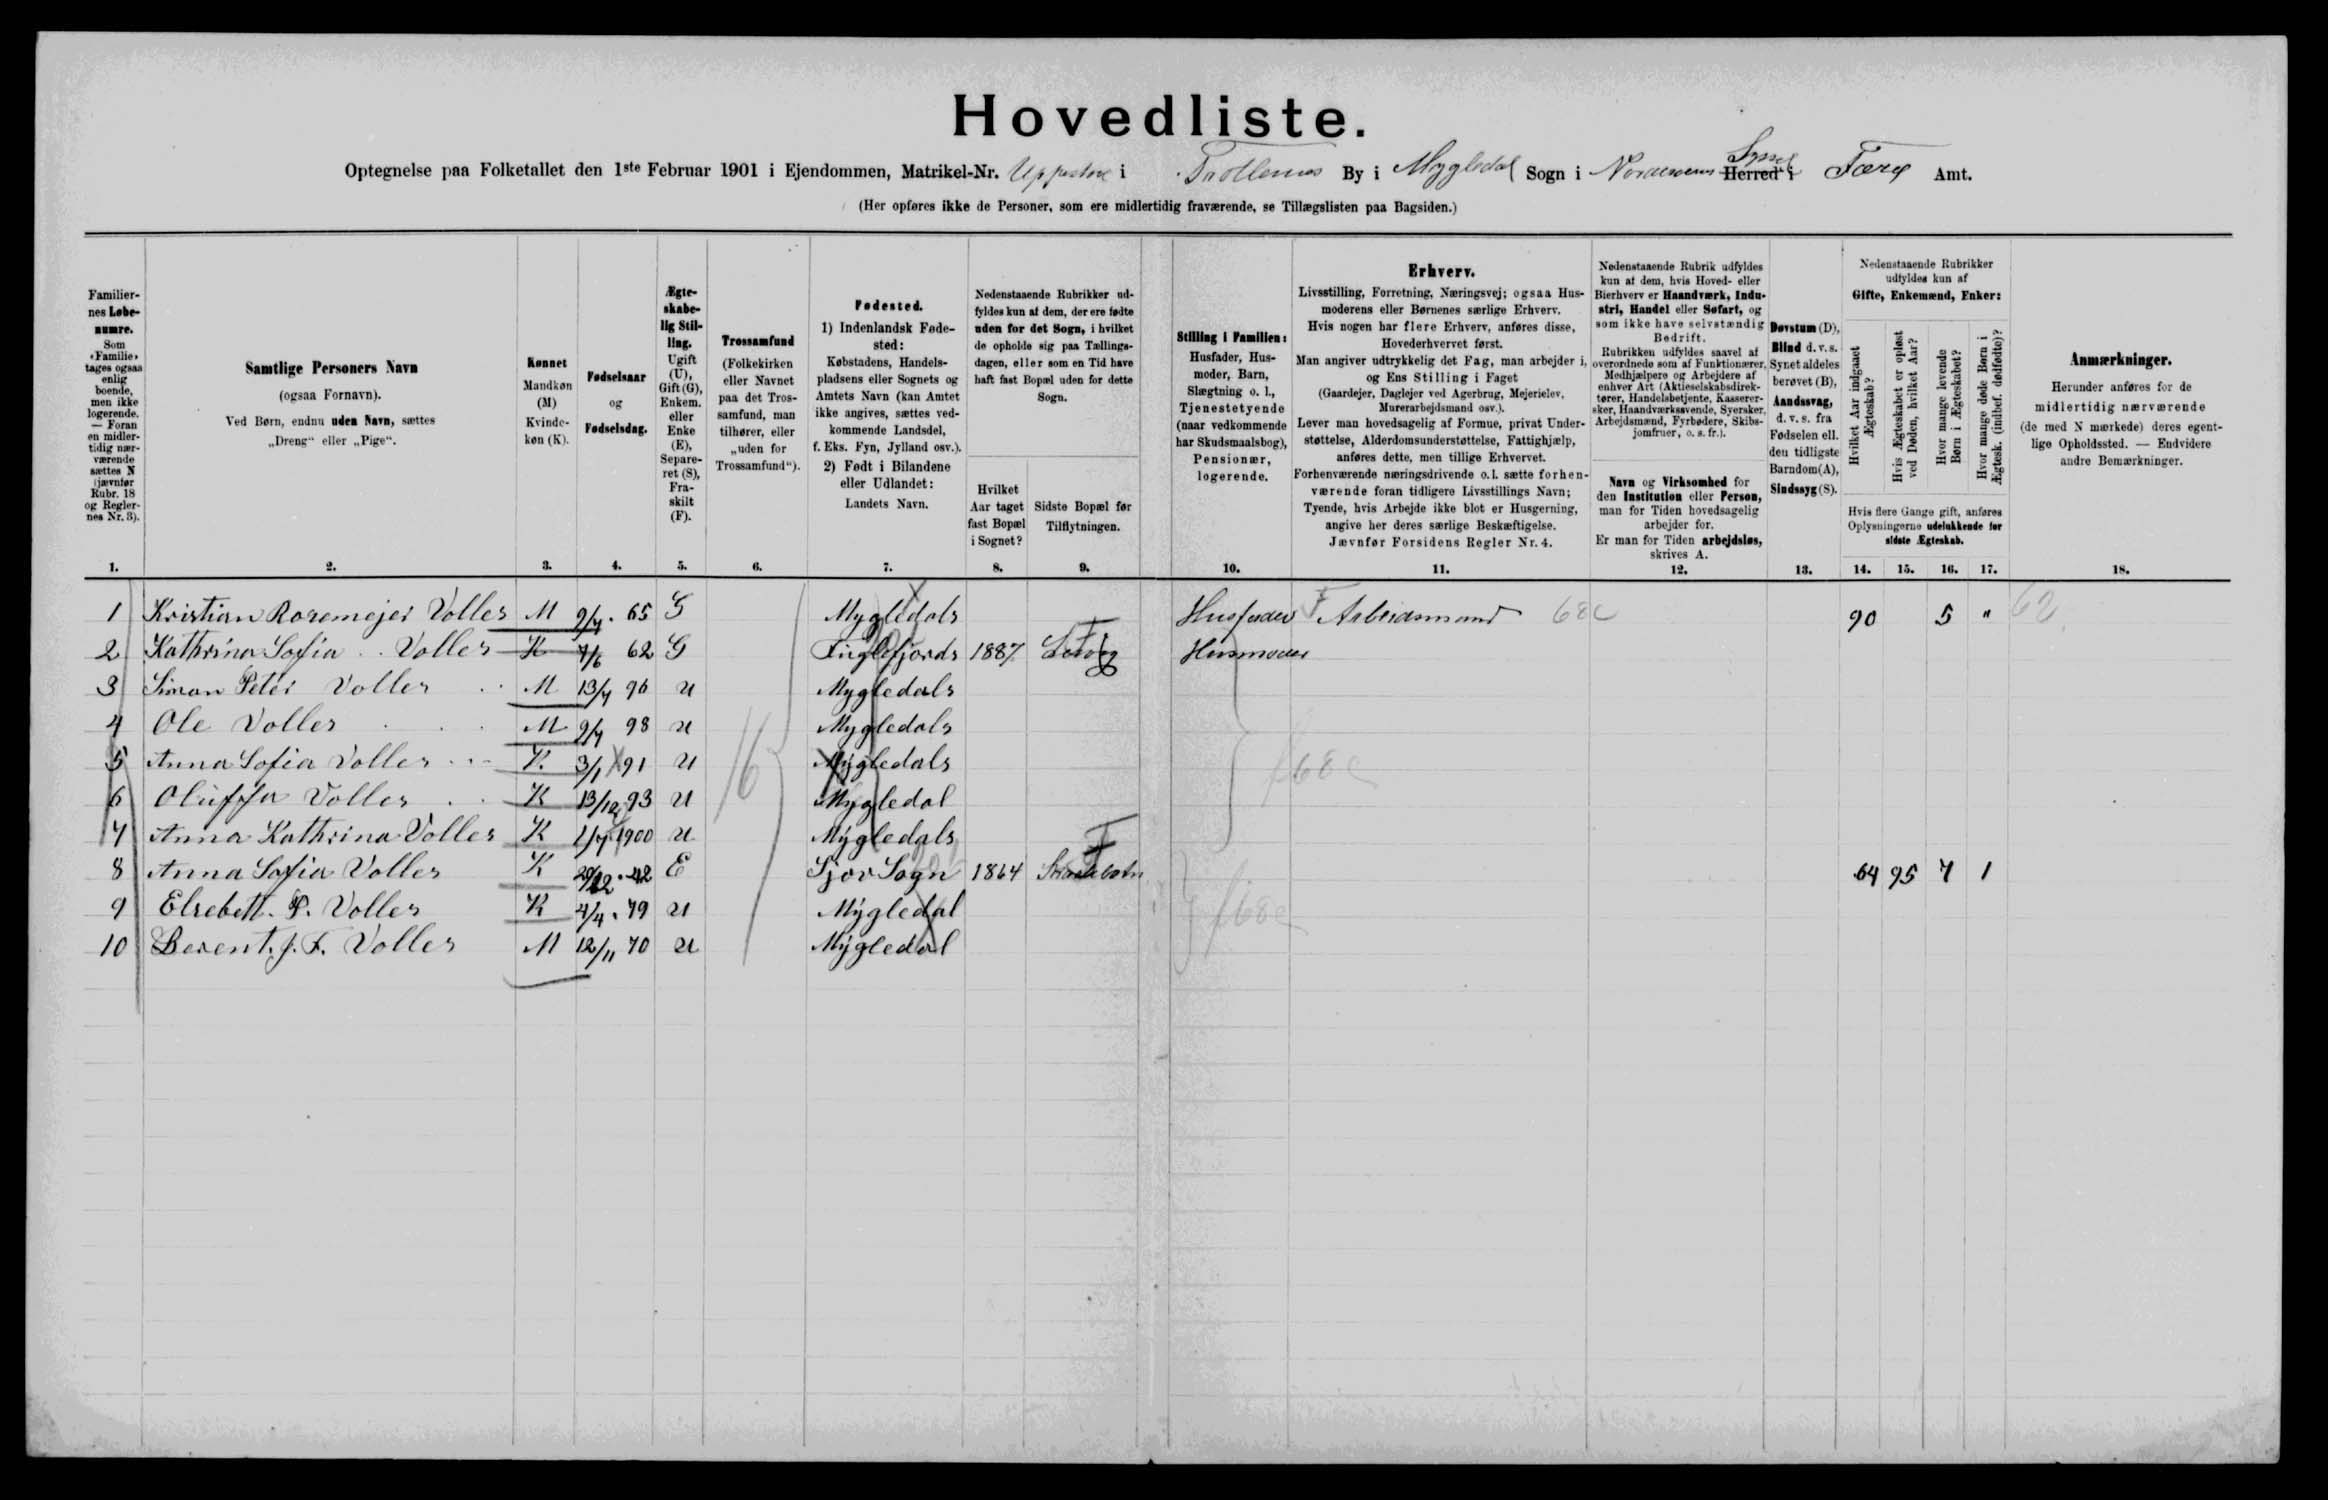 Hovedliste.
Optegnelse paa Folketallet den 1ste Februar 1901 i Ejendommen, Matrikel-Nr. i By i Mygledal Sogn i Syssel Herred i Færø Amt.
(Her opføres ikke de Personer, som ere midlertidig fraværende, se Tillægslisten paa Bagsiden.)
Familier-
nes Løbe-
numre.
Som
«Familie»
tages ogsaa
enlig
boende,
men ikke
logerende.
— Foran
en midler-
tidig nær-
værende
sættes N
(jævnfør
Rubr. 18
og Regler-
nes Nr. 3).
1.
Samtlige Personers Navn
(ogsaa Fornavn).
Ved Børn, endnu uden Navn, sættes
„Dreng“ eller „Pige“.
2.
Kønnet
Mandkøn
(M)
Kvinde-
køn (K).
3.
Fødselsaar
og
Fødselsdag.
4.
Ægte-
skabe-
lig Stil-
ling.
Ugift
(U),
Gift (G),
Enkem.
eller
Enke
(E),
Separe-
ret (S),
Fra-
skilt
(F).
5.
Trossamfund
(Folkekirken
eller Navnet
paa det Tros-
samfund, man
tilhører, eller
„uden for
Trossamfund“).
6.
Fødested.
1) Indenlandsk Føde-
sted:
Købstadens, Handels-
pladsens eller Sognets og
Amtets Navn (kan Amtet
ikke angives, sættes ved-
kommende Landsdel,
f. Eks. Fyn, Jylland osv.).
2) Født i Bilandene
eller Udlandet:
Landets Navn.
7.
Nedenstaaende Rubrikker ud-
fyldes kun af dem, der ere fødte
uden for det Sogn, i hvilket
de opholde sig paa Tællings-
dagen, eller som en Tid have
haft fast Bopæl uden for dette
Sogn.
Hvilket
Aar taget
fast Bopæl
i Sognet?
8.
Sidste Bopæl før
Tilflytningen.
9.
Stilling i Familien:
Husfader, Hus-
moder, Barn,
Slægtning o. l.,
Tjenestetyende
(naar vedkommende
har Skudsmaalsbog),
Pensionær,
logerende.
10.
Erhverv.
Livsstilling, Forretning, Næringsvej; ogsaa Hus-
moderens eller Børnenes særlige Erhverv.
Hvis nogen har flere Erhverv, anføres disse,
Hovederhvervet først.
Man angiver udtrykkelig det Fag, man arbejder i,
og Ens Stilling i Faget
(Gaardejer, Daglejer ved Agerbrug, Mejerielev,
Murerarbejdsmand osv.).
Lever man hovedsagelig af Formue, privat Under-
støttelse, Alderdomsunderstøttelse, Fattighjælp,
anføres dette, men tillige Erhvervet.
Forhenværende næringsdrivende o. l. sætte forhen-
værende foran tidligere Livsstillings Navn;
Tyende, hvis Arbejde ikke blot er Husgerning,
angive her deres særlige Beskæftigelse.
Jævnfør Forsidens Regler Nr. 4.
11.
Nedenstaaende Rubrik udfyldes
kun af dem, hvis Hoved- eller
Bierhverv er Haandværk, Indu-
stri, Handel eller Søfart, og
som ikke have selvstændig
Bedrift.
Rubrikken udfyldes saavel af
overordnede som af Funktionærer,
Medhjælpere og Arbejdere af
enhver Art (Aktieselskabsdirek-
tører, Handelsbetjente, Kasserer-
sker, Haandværkssvende, Syersker,
Arbejdsmænd, Fyrbødere, Skibs-
jomfruer, o. s. fr.).
Navn og Virksomhed for
den Institution eller Person,
man for Tiden hovedsagelig
arbejder for.
Er man for Tiden arbejdsløs,
skrives A.
12.
Døvstum (D),
Blind d. v. s.
Synet aldeles
berøvet (B),
Aandssvag,
d. v. s. fra
Fødselen ell.
den tidligste
Barndom (A),
Sindssyg (S).
13.
Nedenstaaende Rubrikker
udfyldes kun af
Gifte, Enkemænd, Enker:
Hvilket Aar indgaaet
Ægteskab?
Hvis Ægteskabet er opløst
ved Døden, hvilket Aar?
Hvor mange levende
Børn i Ægteskabet?
Hvor mange døde Børn i
Ægtesk. (indbef. dødfødte)?
Hvis flere Gange gift, anføres
Oplysningerne udelukkende for
sidste Ægteskab.
14. 15. 16. 17.
Anmærkninger.
Herunder anføres for de
midlertidig nærværende
(de med N mærkede) deres egent-
lige Opholdssted. — Endvidere
andre Bemærkninger.
18.
1 Kristian Rosemejer Volles M 9/7 65 G Mygledals Husfader F Arbeidsmand 68c 90 5 " 62
2 Kathrina Sofia Volles K 7/6 62 G Fuglefjords 1887 Husmoder
3 Simon Peter Volles M 13/7 96 U Mygledals
4 Ole Volles M 9/7 98 U Mygledals
5 Anna Sofia Volles K 3/1 91 U Mygledals
6 Oluffa Volles K 13/12 93 U Mygledal
7 Anna Kathrina Volles K 1900 U Mygledals
8 Anna Sofia Volles K 42 E Sjov Sogn 1864 64 95 7 1
9 Elsebett. P. Volles K 4/4 79 U Mygledal
10 Berent. J. F. Volles M 12/11 70 U Mygledal
16
f68c
f68c